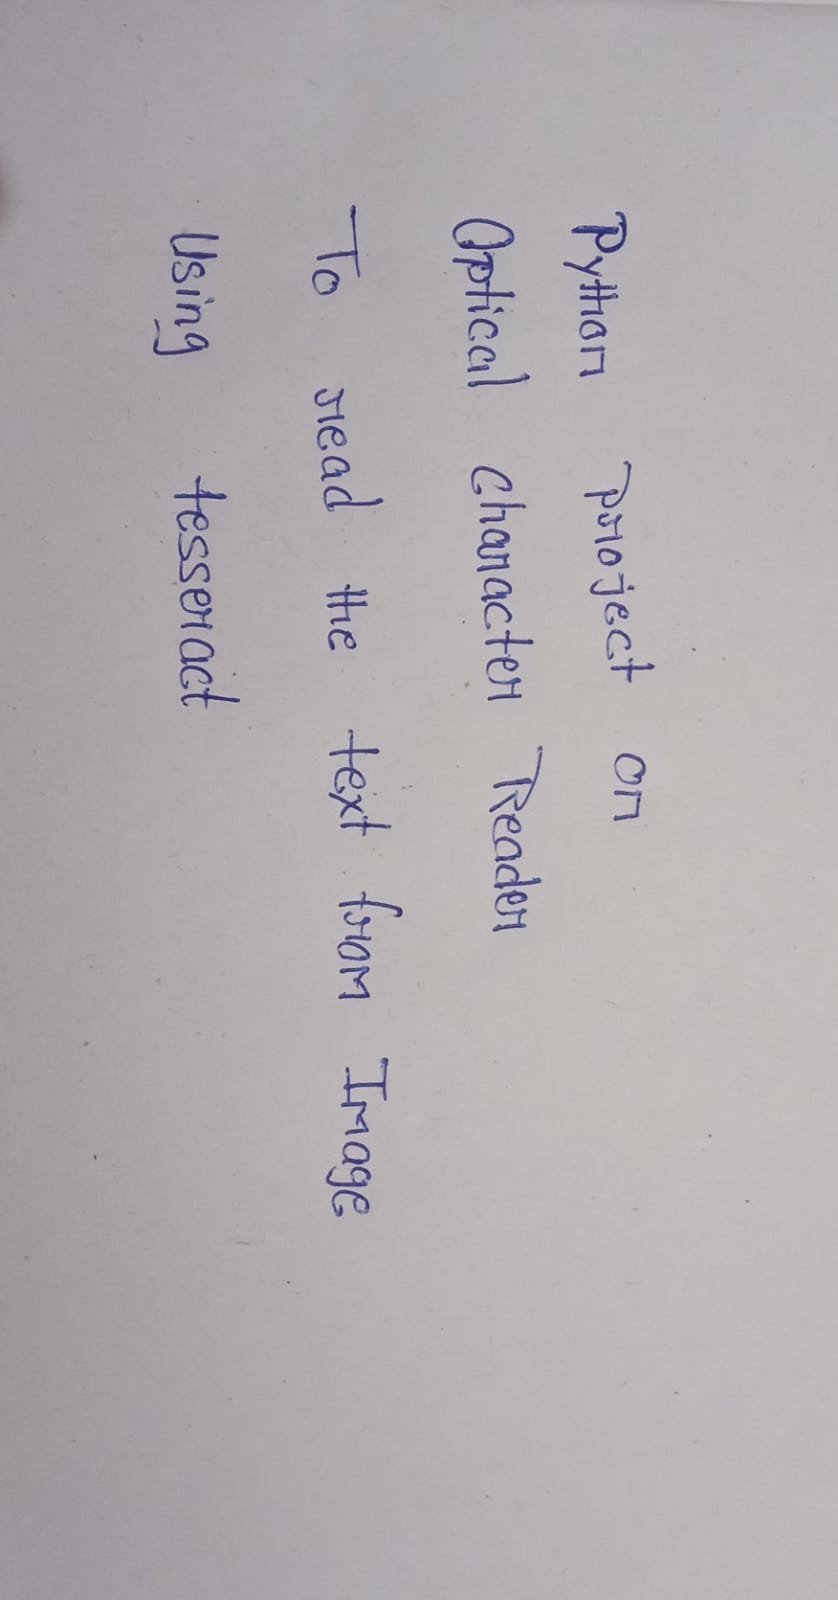 Python project on
Optical Character Reader
To read the text from Image
Using tesseract